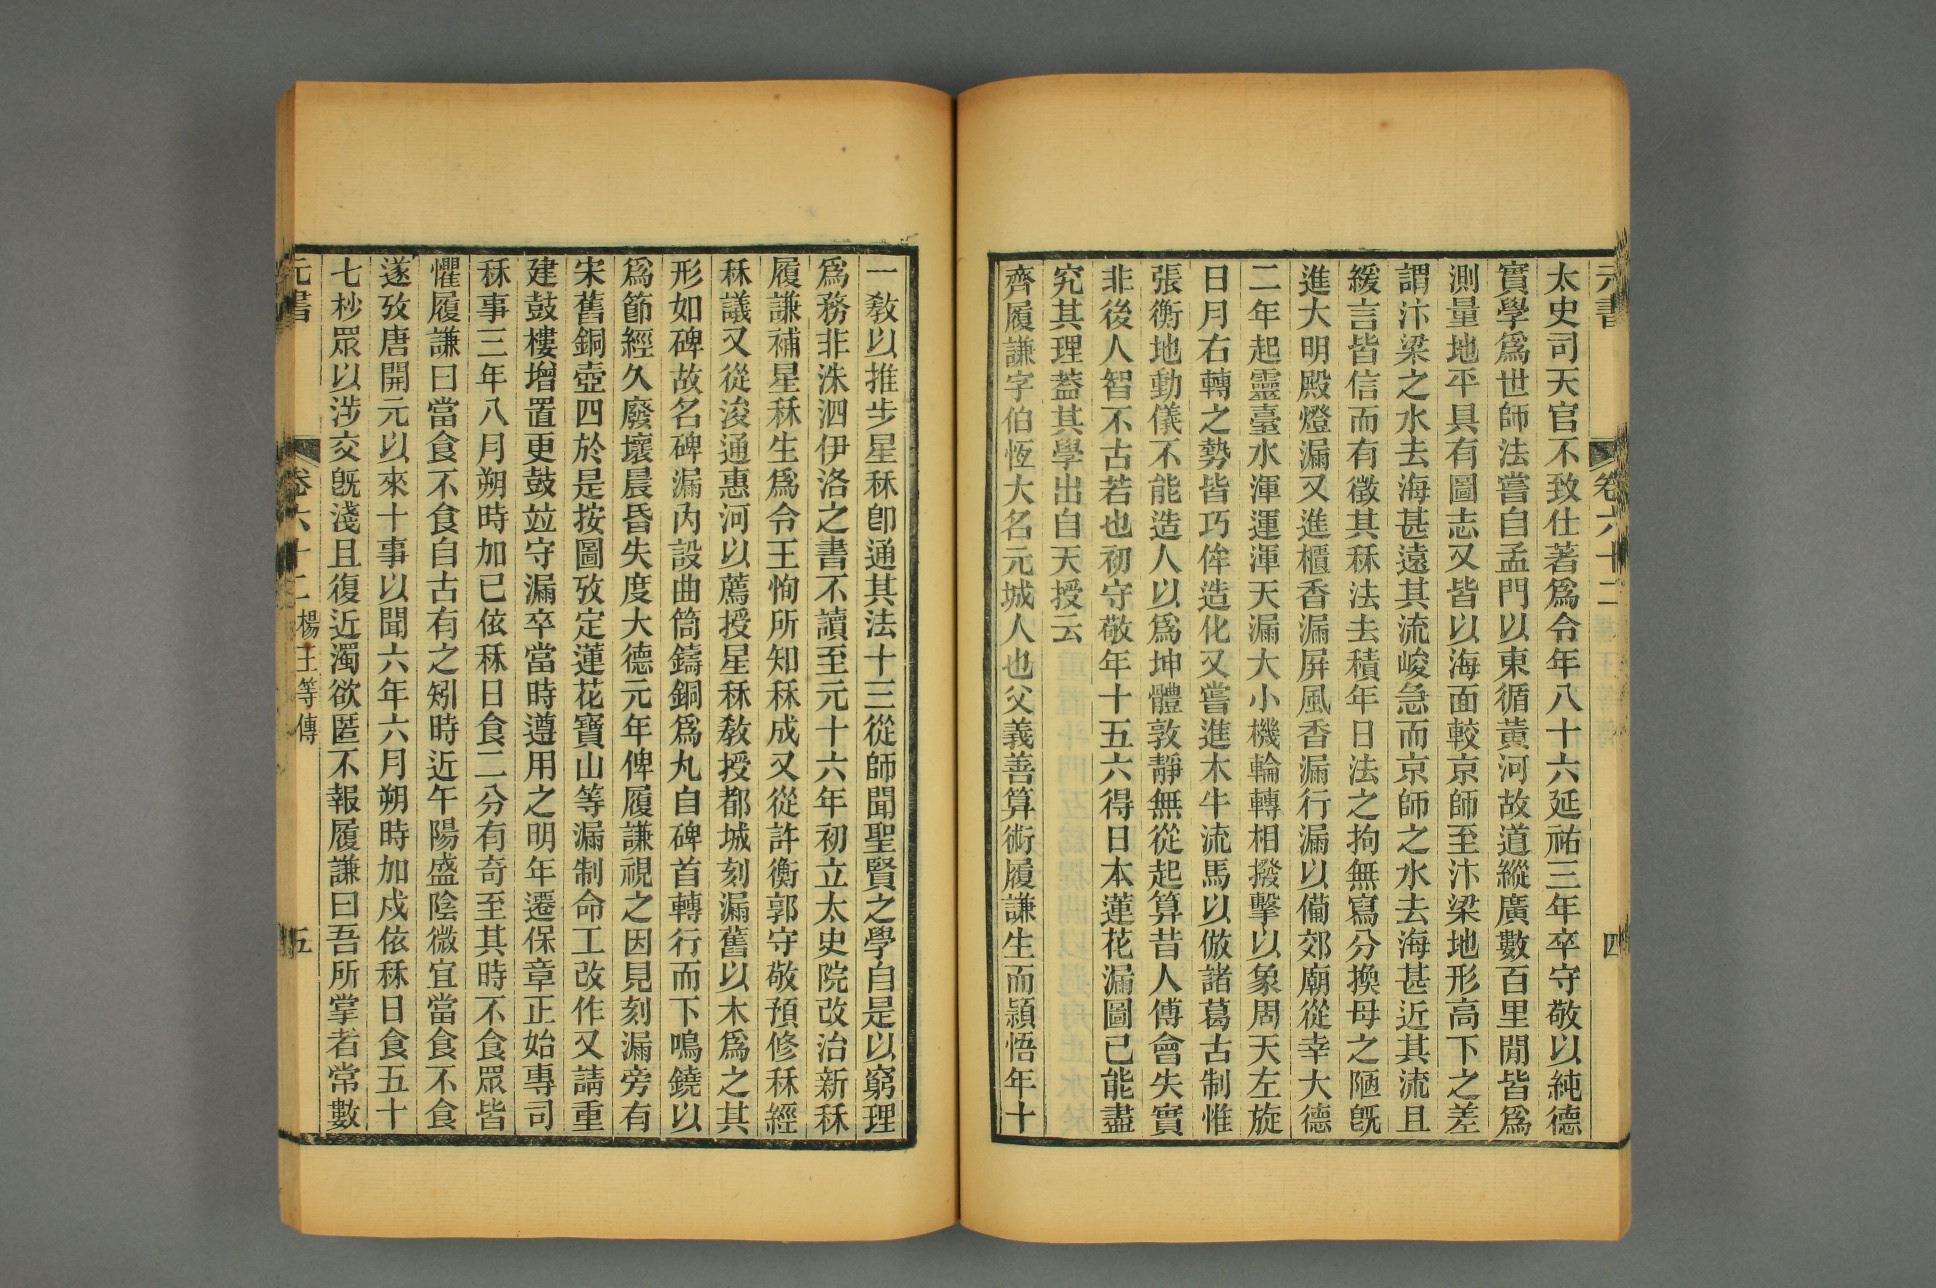 元書
卷六十二
四
太史司天官不致仕著爲令年八十六延祐三年卒守敬以純德
實學爲世師法嘗自孟門以東循黃河故道縱廣數百里間皆爲
測量地平具有圖志又皆以海面較京師至汴梁地形高下之差
謂汴梁之水去海甚遠其流峻急而京師之水去海甚近其流且
緩言皆信而有徵其秝法去積年日法之拘無寫分換母之陋旣
進大明殿燈漏又進櫃香漏屏風香漏行漏以備郊廟從幸大德
二年起靈臺水渾運渾天漏大小機輪轉相撥擊以象周天左旋
日月右轉之勢皆巧侔造化又嘗進木牛流馬以倣諸葛古制惟
張衡地動儀不能造人以爲坤體敦靜無從起算昔人傅會失實
非後人智不古若也初守敬年十五六得日本蓮花漏圖已能盡
究其理蓋其學出自天授云
齊履謙字伯恆大名元城人也父義善算術履謙生而穎悟年十
一敎以推步星秝卽通其法十三從師聞聖賢之學自是以窮理
爲務非洙泗伊洛之書不讀至元十六年初立太史院改治新秝
履謙補星秝生爲令王恂所知秝成又從許衡郭守敬預修秝經
秝議又從浚通惠河以薦授星秝敎授都城刻漏舊以木爲之其
形如碑故名碑漏內設曲筒鑄銅爲丸自碑首轉行而下鳴鐃以
爲節經久廢壞晨昏失度大德元年俾履謙視之因見刻漏旁有
宋舊銅壺四於是按圖攷定蓮花寶山等漏制命工改作又請重
建鼓樓增置更鼓竝守漏卒當時遵用之明年遷保章正始專司
秝事三年八月朔時加巳依秝日食二分有奇至其時不食眾皆
懼履謙曰當食不食自古有之矧時近午陽盛陰微宜當食不食
遂攷唐開元以來十事以聞六年六月朔時加戌依秝日食五十
七杪眾以涉交旣淺且復近濁欲匿不報履謙曰吾所掌者常數
元書
卷六十二
楊王等傳
五